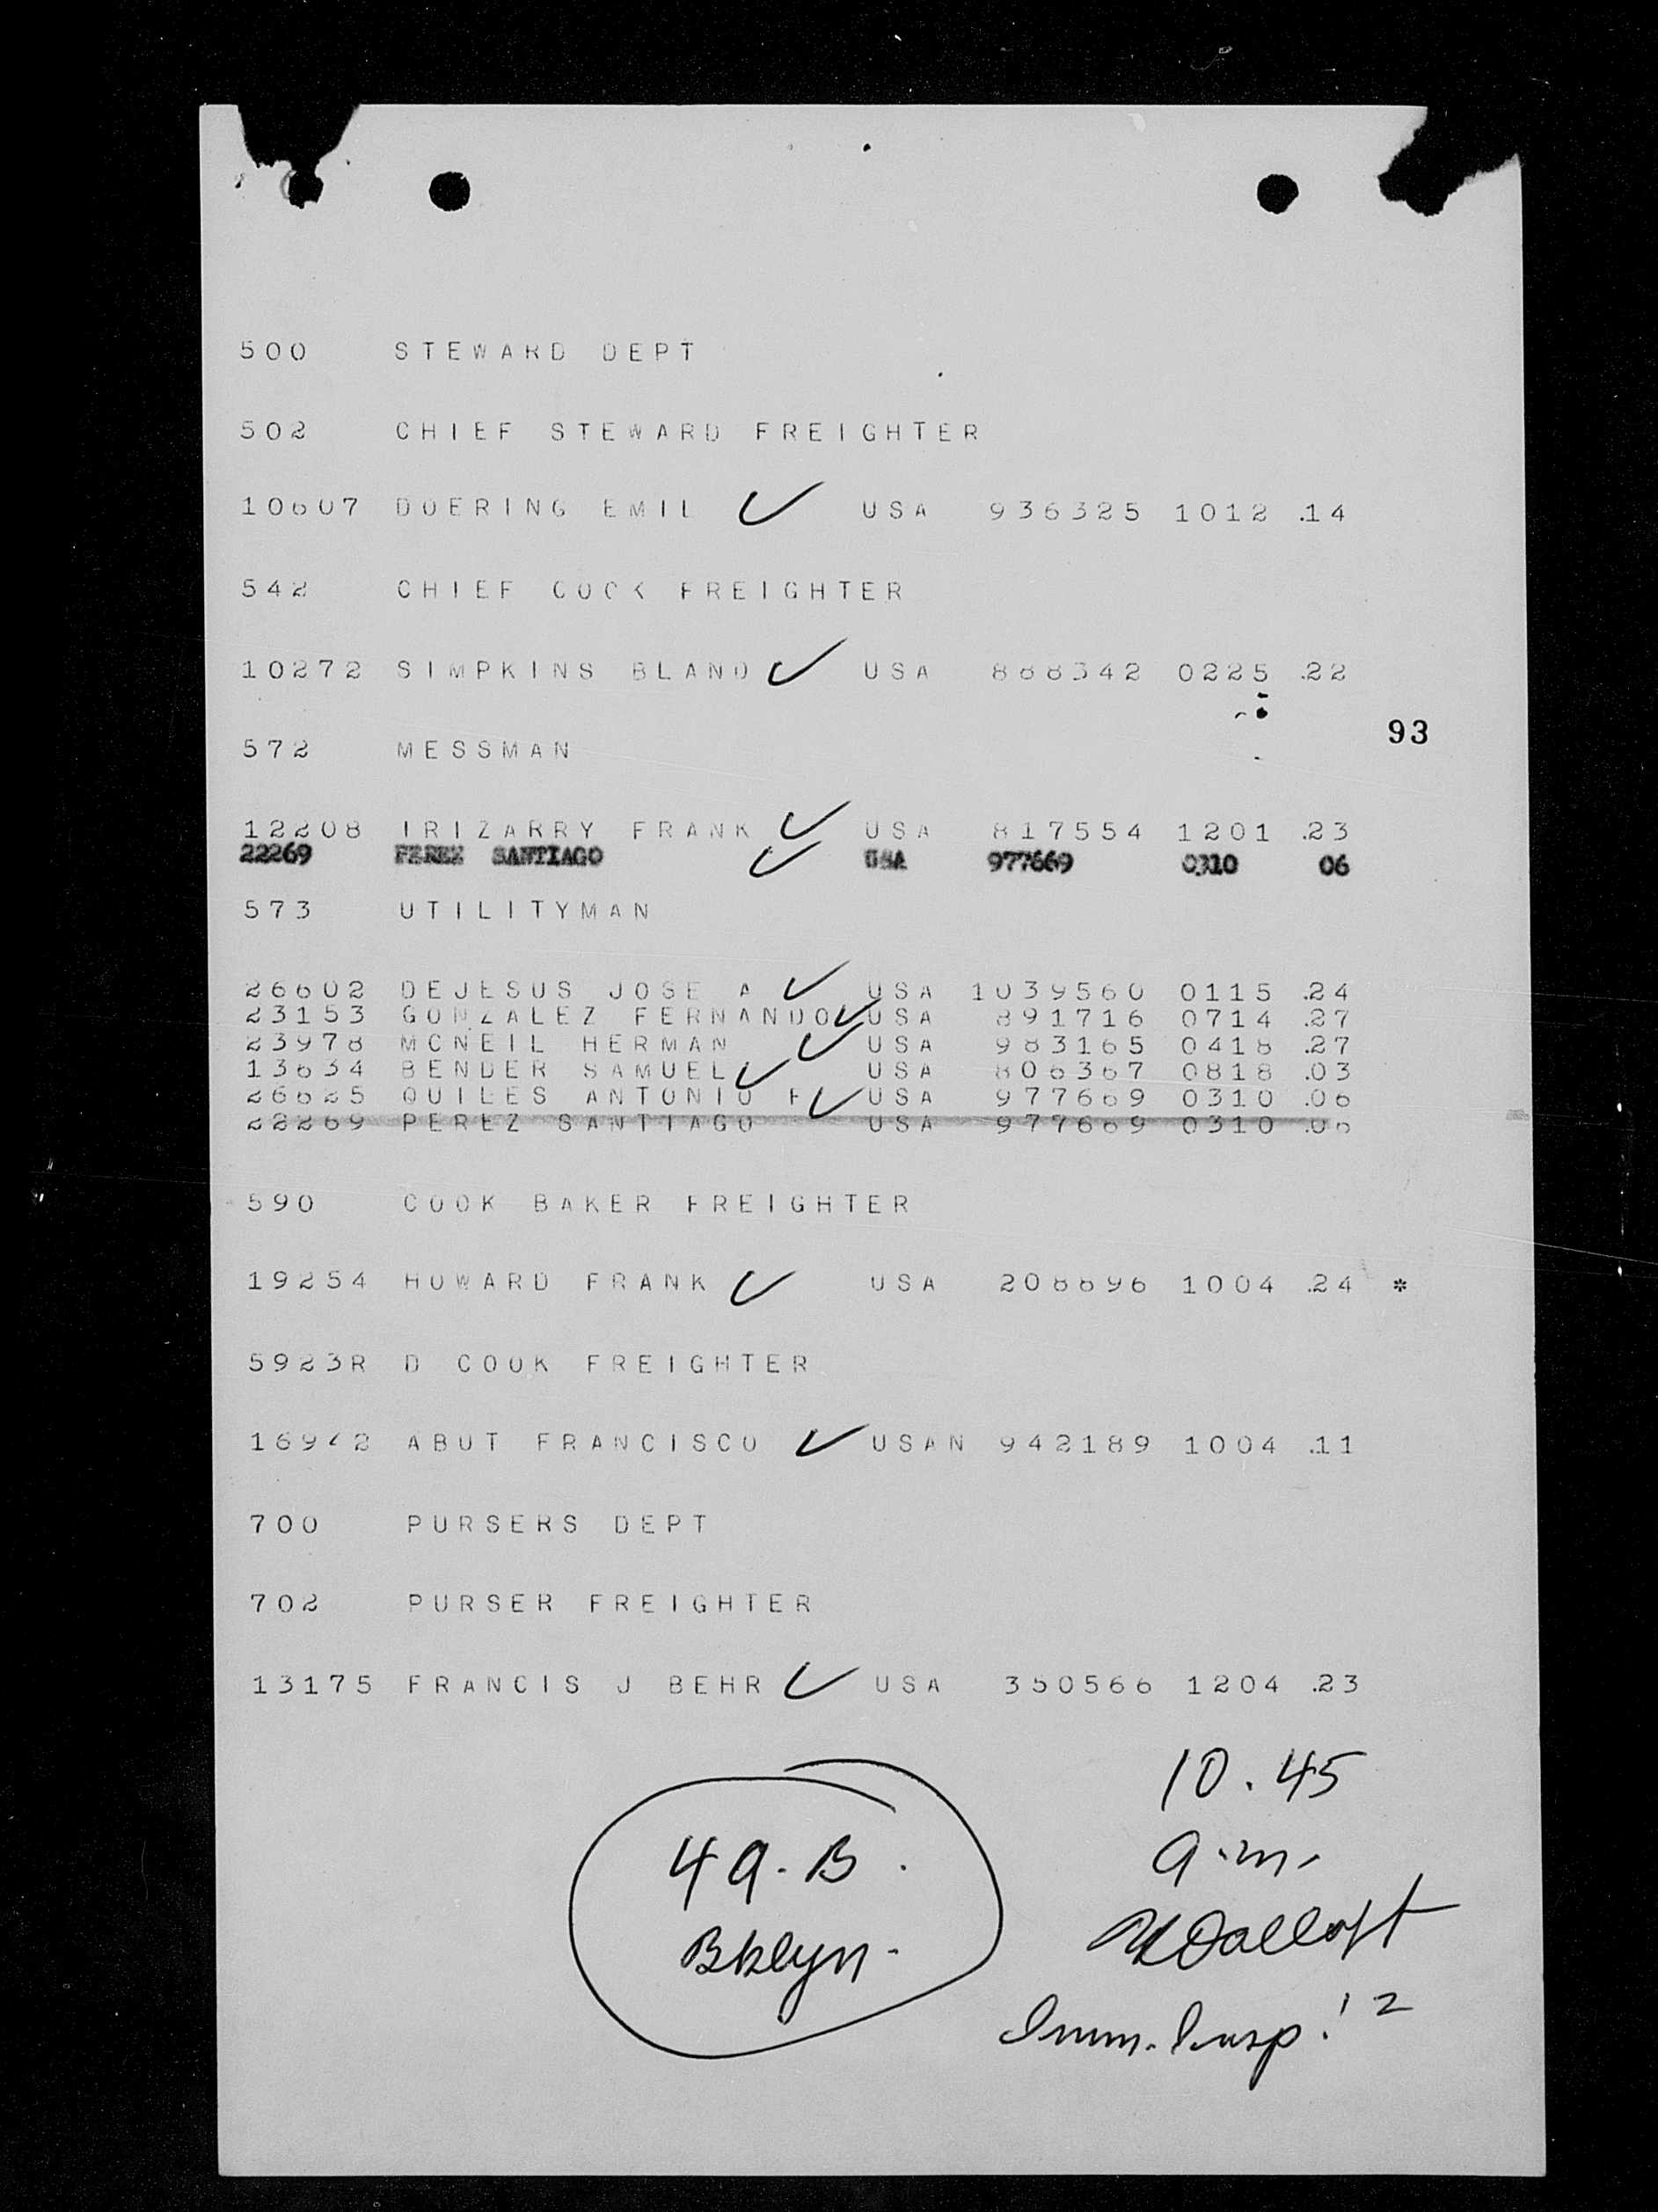 500 STEWARD DEPT
502 CHIEF STEWARD FREIGHTER
10607 DOERING EMIL ✓ USA 936325 1012 .14
542 CHIEF COCK FREIGHTER
10272 SIMPKINS BLAND ✓ USA 868342 0225 .22
93
572 MESSMAN
12208 IRIZARRY FRANK ✓ USA 817554 1201 .23
22269 PEREZ SANTIAGO ✓ USA 977669 0310 06
573 UTILITYMAN
26602 DEJESUS JOSE A ✓ USA 1039560 0115 .24
23153 GONZALEZ FERNANDO ✓ USA 891716 0714 .27
23978 MCNEIL HERMAN ✓ USA 983165 0418 .27
13634 BENDER SAMUEL ✓ USA 806367 0818 .03
26625 QUILES ANTONIO F ✓ USA 977669 0310 .06
22269 PEREZ SANTIAGO USA 977669 0310 .06
590 COOK BAKER FREIGHTER
19254 HOWARD FRANK ✓ USA 206696 1004 .24 *
5923R D COOK FREIGHTER
16942 ABUT FRANCISCO ✓ USAN 942189 1004 .11
700 PURSERS DEPT
702 PURSER FREIGHTER
13175 FRANCIS J BEHR ✓ USA 350566 1204 .23
10.45
a.m.
49.B.
Bklyn.
Imm. Insp.